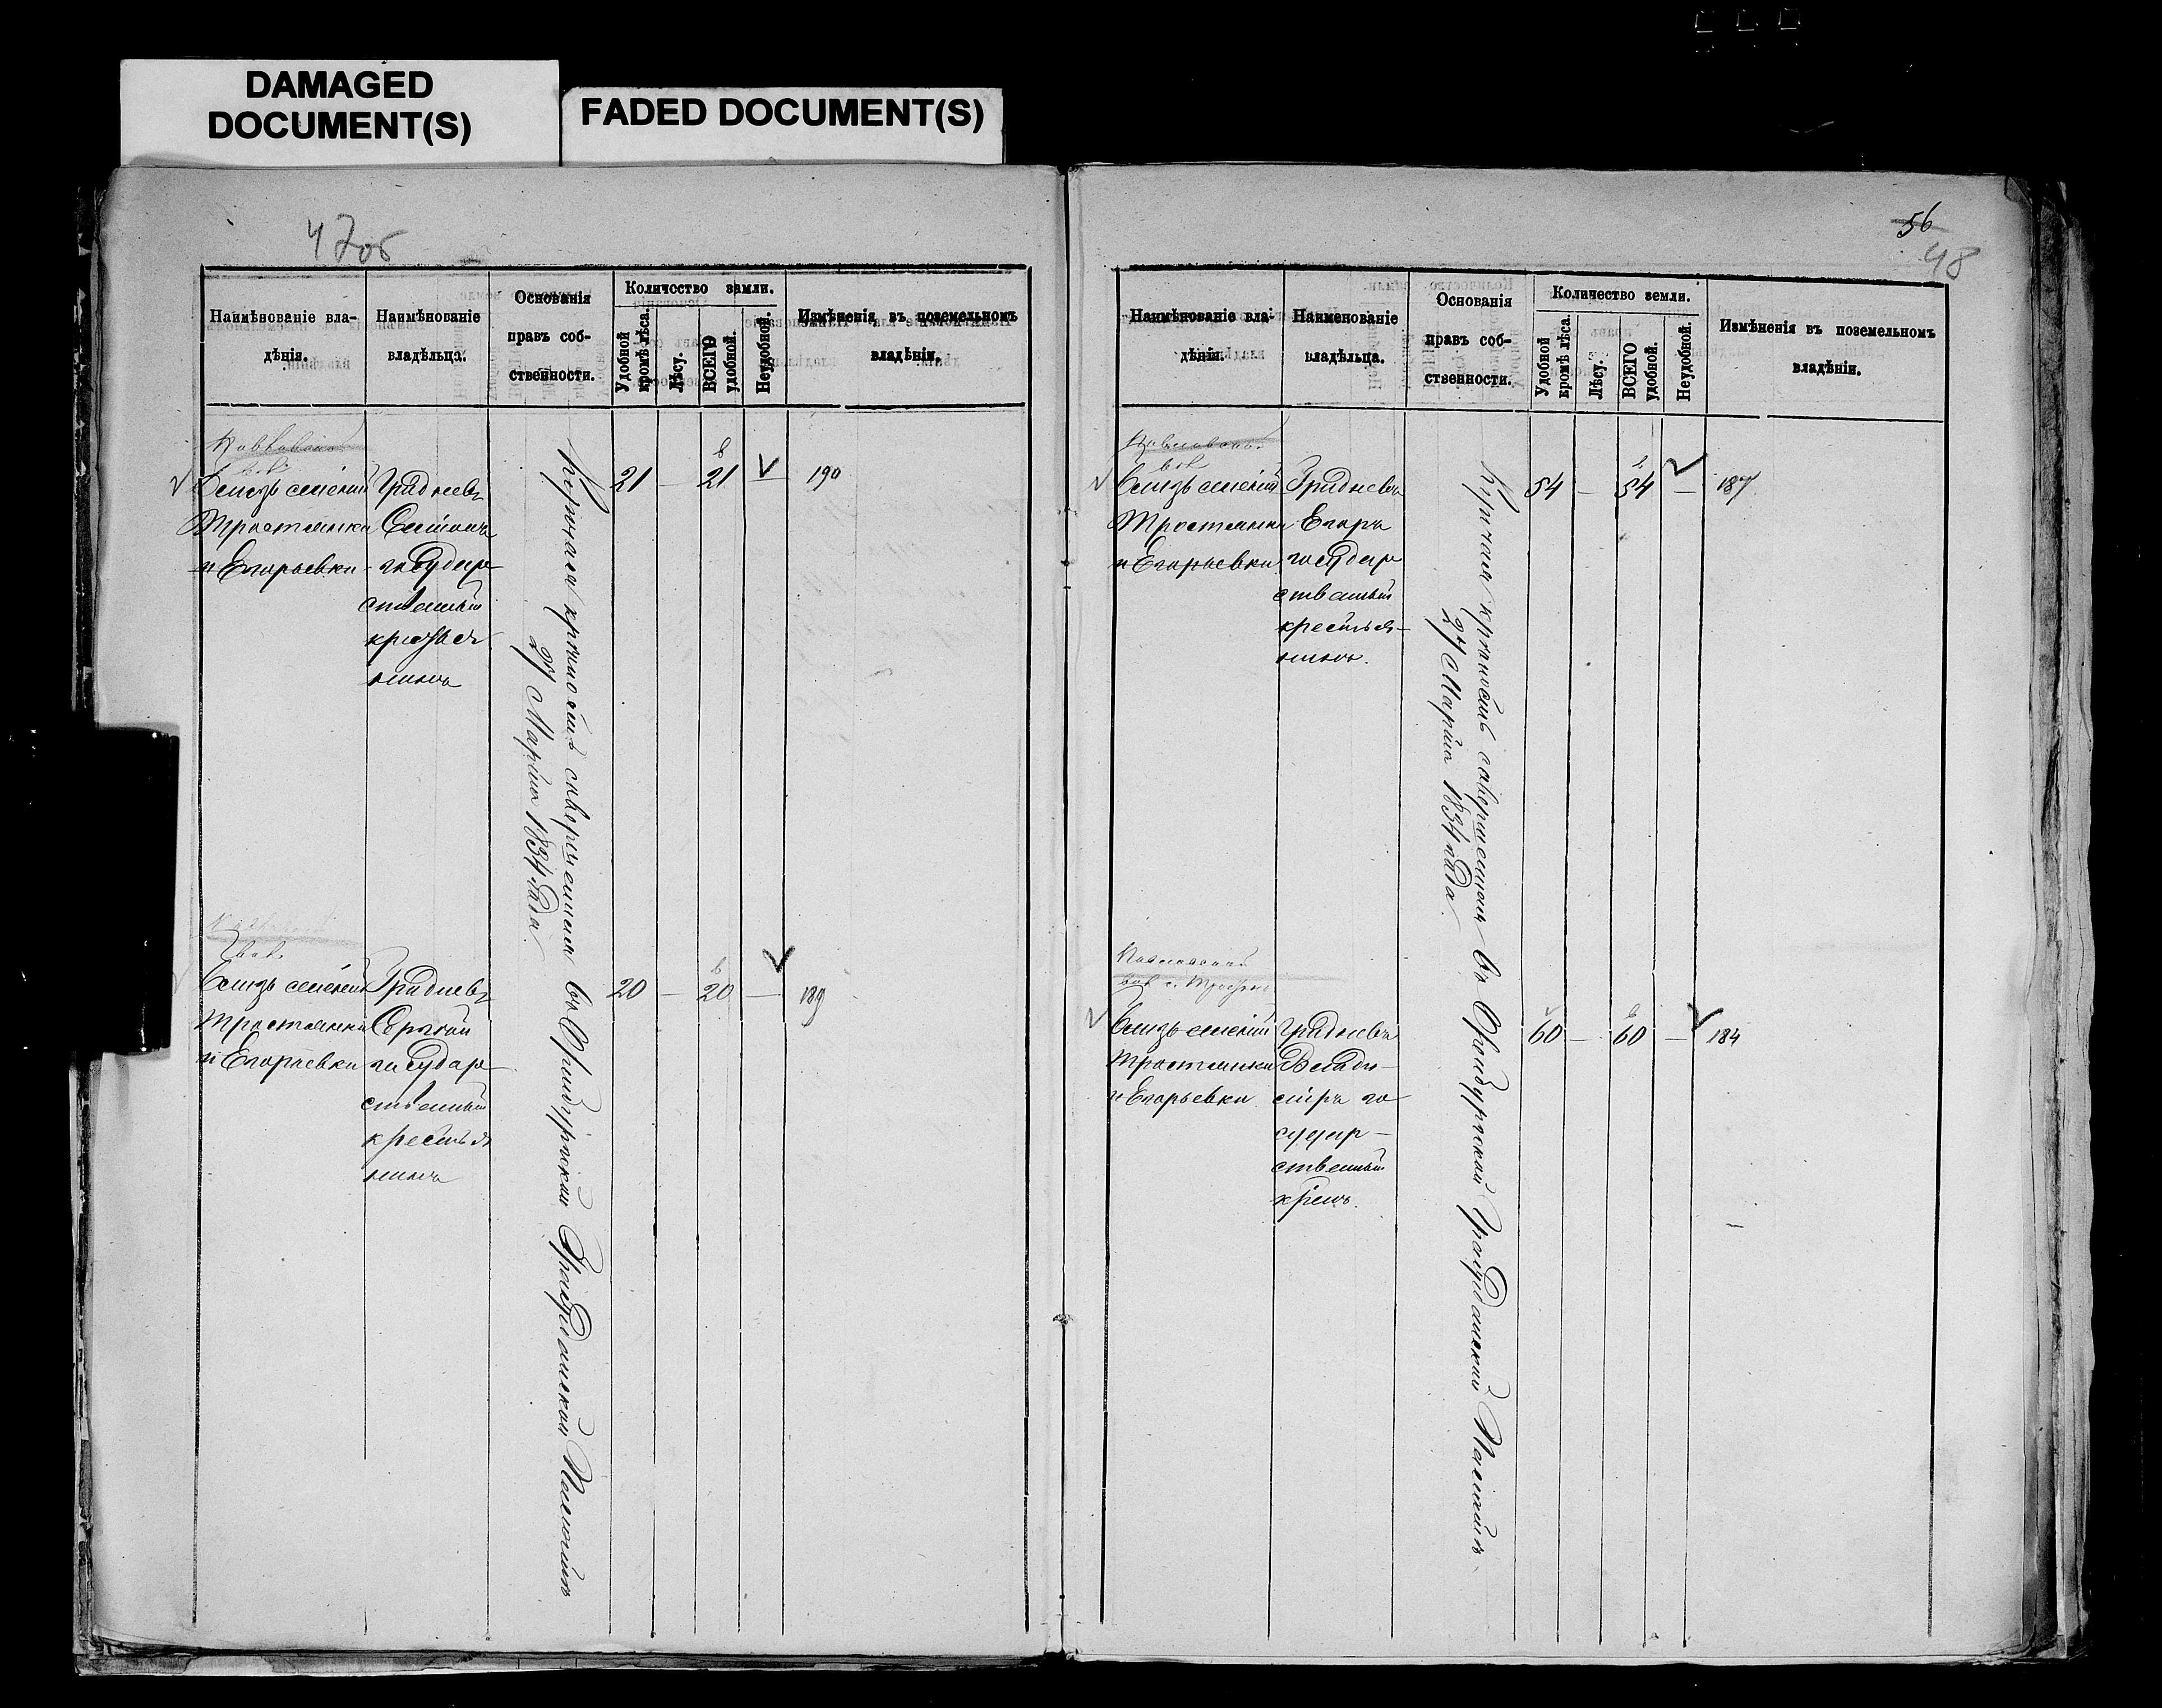 DAMAGED
DOCUMENT(S)
FADED DOCUMENT(S)
47об
Наимѣнованіе вла-
дѣнія.
Наимѣнованіе
владѣльца.
Основанія
правъ соб-
ственности.
Количество земли.
Удобной
кромѣ лѣса.
Лѣсу.
ВСЕГО
удобной.
Неудобной.
Измѣненія въ поземельномъ
владѣніи.
вол.
Близь селеній
Тростянки
и Егорьевки
Гридневъ
Семионъ
государ-
ственный
крестья
нинъ
Купчая крѣпость совершеная въ Оренбургской Гражданской Палатѣ
27 Марта 1834 года.
21 — 21 — 190
вол.
Близь селеній
Тростянки
и Егорьевки
Гридневъ
Сергѣй
государ-
ственный
крестья
нинъ
20 — 20 — 189
56
48
Наимѣнованіе вла-
дѣнія.
Наименованіе
владѣльца.
Основанія
правъ соб-
ственности.
Количество земли.
Удобной
кромѣ лѣса.
Лѣсу.
ВСЕГО
удобной.
Неудобной.
Измѣненія въ поземельномъ
владѣніи.
вол
Близь селеній
Тростянки
и Егорьевки
Гридневъ
Егоръ
государ
ственный
крестья-
нинъ.
Купчая крѣпость совершенная въ Оренбургской Гражданской Палатѣ
27 Марта 1834 года.
54 — 54 — 187
вол с.
Близь селеній
Тростянки
и Егорьевки
Гридневъ
го
судар-
ственный
крест.
60 — 60 — 184